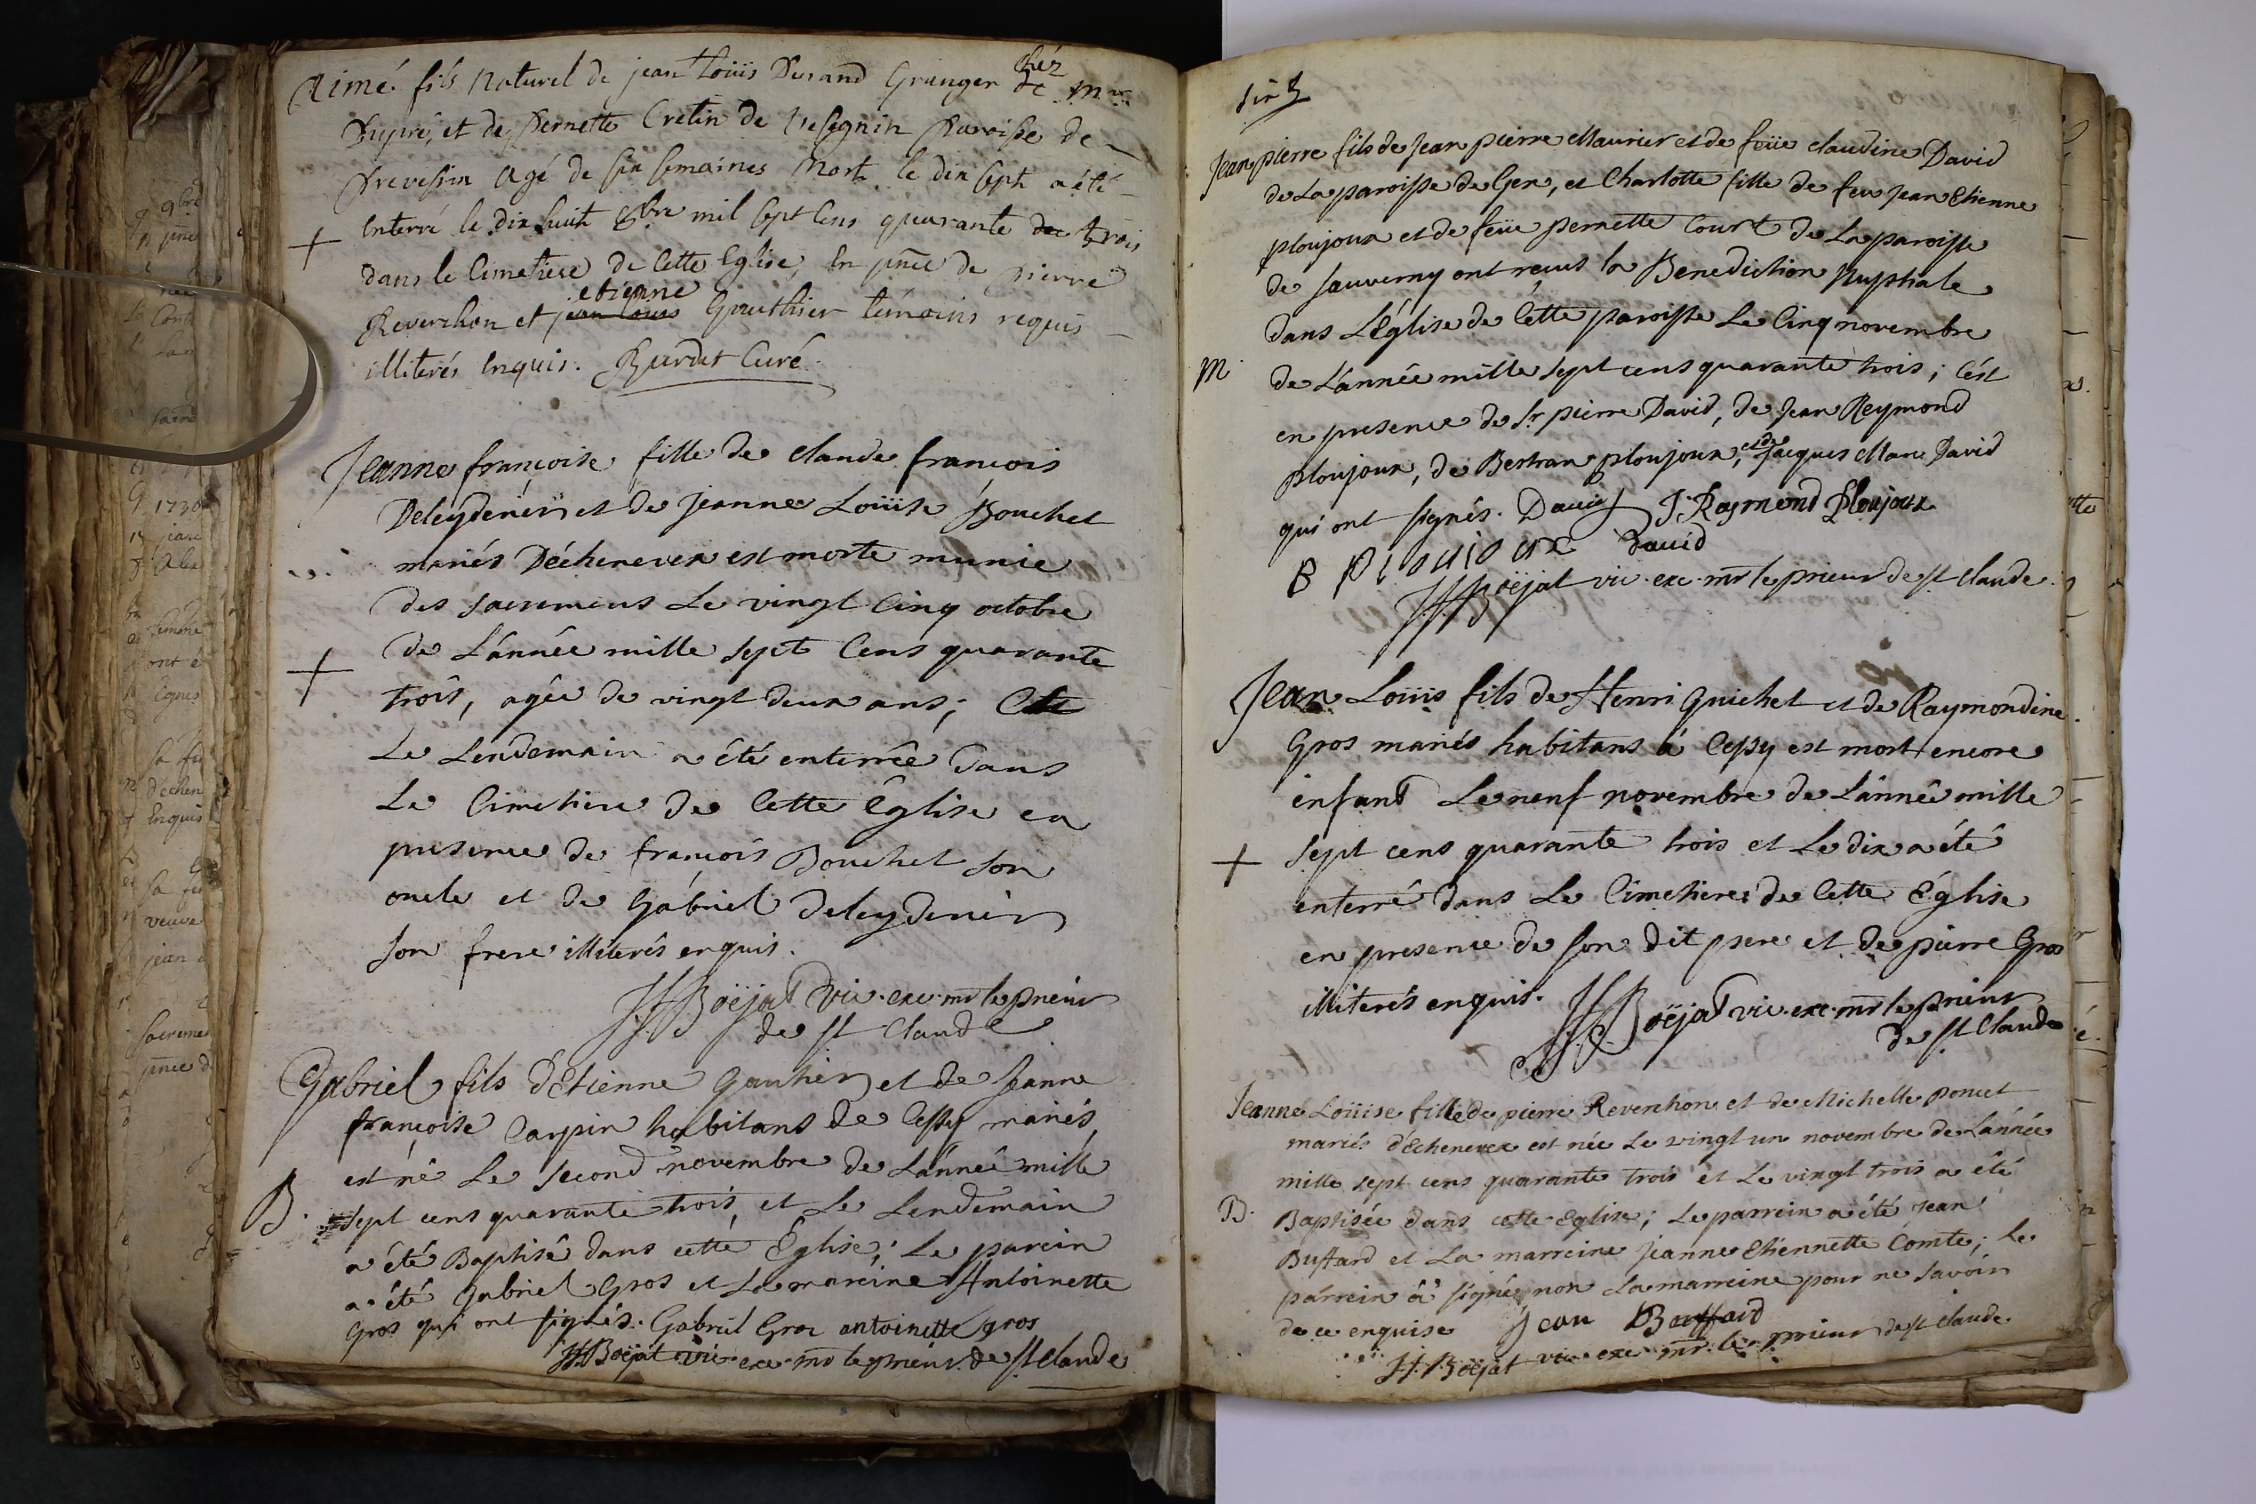 Aimé fils Naturel de jean Loüis Durand Granger chéz Mr
Dupré, et de Pernette Cretin de Vesegnin Paroisse de
Prevessin Agé de six semaines Mort le dix sept a été
Enterré le Dix huit 8bre mil sept Cens quarante trois
+
dans le Cimetiere de Cette Eglise, En pnce de pierre
etienne
Reverchon et jean Louis Gauthier témoins requis
illiterés Enquis. Burdet Curé
Jeanne françoise fille de claude françois
Deleydenier et de Jeanne Loüise Bouchet
mariés Déchenevex est morte munie
des sacremens Le vingt Cinq octobre
+
de L'année mille sept Cens quarante
trois, agée de vingt deux ans;
Le Lendemain a été enterrée dans
Le Cimetiere de Cette Eglise en
presence de françois Bouchet son
oncle et de Gabriel deleydenier
son frere illiterés enquis.
J.f.Boëjat vic. exc. mr le prieur
de st Claude
Gabriel fils d'Etienne Gautier et de Jeanne
françoise Carpin habitans de Cessy mariés,
est né Le second novembre de L'année mille
B.
sept cens quarante trois, et Le Lendemain
a été Baptisé dans cette Eglise; Le parein
a été Gabriel Gros et La mareine Antoinette
Gros qui ont signés. Gabriel Gros antoinette gros
J.f.Boëjat vic. exc. mr le prieur de st Claude
Jean pierre fils de Jean pierre Maurier et de feüe claudine David
de La paroisse de Gex, et Charlotte fille de feu Jean Etienne
ploujoux et de feüe pernette Court de La paroisse
de sauverny ont reçus la Benediction Nuptiale
dans L'Eglise de Cette paroisse Le Cinq novembre
M.
de L'année mille sept cens quarante trois; C'est
en presence de Sr pierre David, de Jean Reymond
ploujoux, de Bertran ploujoux, et de Jacques Marc David
qui ont signés. David J. Raymond Ploujoux
B ploujoux David
J.f.Boëjat vic. exc. mr le prieur de st Claude.
Jean Loüis fils de Henri Guichet et de Raymondine
Gros mariés habitans à Cessy est mort encore
enfant Le neuf novembre de L'année mille
+
sept cens quarante trois et Le dix a été
enterré dans Le Cimetiere de Cette Église
en presence de son dit pere et de pierre Gros
illiterés enquis.
J.f.Boëjat vic. exc. mr le prieur
de st Claude
Jeanne Loüise fille de pierre Reverchon et de Michelle poncet
mariés d'Echenevex est née Le vingt un novembre de L'année
mille sept cens quarante trois et Le vingt trois a été
B.
Baptisée dans cette Eglise; Le parrein a été Jean
Buffard et La marreine Jeanne Etiennette Comte; le
parrein a signé, non La marreine pour ne savoir
de ce enquise Jean Bouffard
J.f.Boëjat vic. exc. mr. le prieur de st Claude